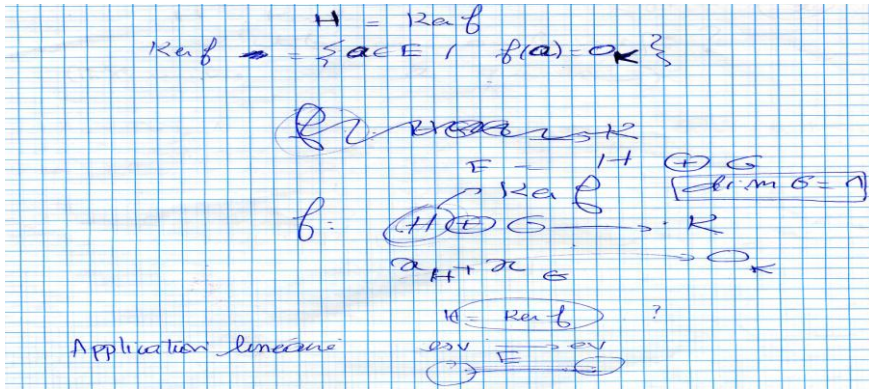 H = Ker f
Ker f = { a ∈ E / f(a) = 0_K }
E = H ⊕ G
Ker f [dim G = 1]
f : H ⊕ G → K
x_H + x_G → 0_K
H = Ker f ?
Application linéaire esv → ev
E